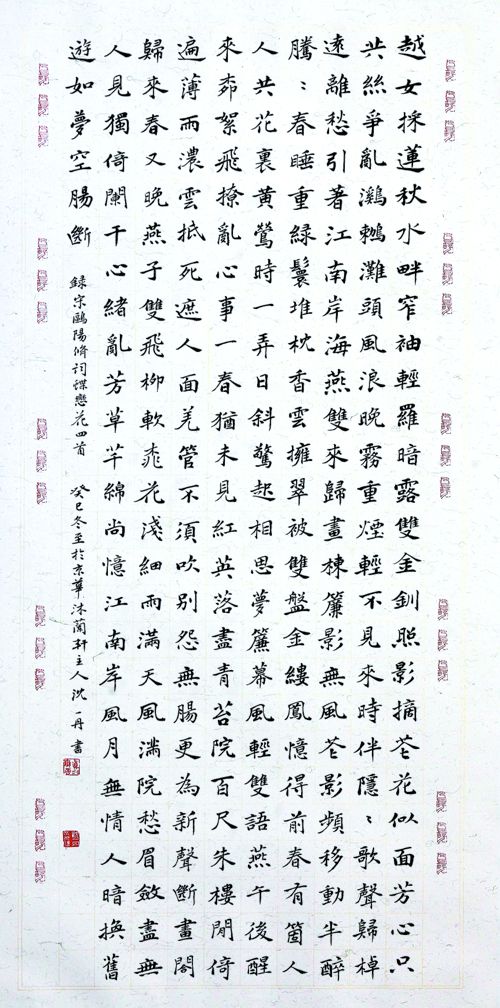 越女採蓮秋水畔窄袖輕羅暗露雙金釧照影摘芲花似面芳心只
共絲爭亂鸂鶒灘頭風浪晚霧重煙輕不見來時伴隱：歌聲歸棹
遠離愁引著江南岸海燕雙來歸畫棟簾影無風芲影頻移動半醉
騰：春睡重綠鬟堆枕香雲擁翠被雙盤金縷鳳憶得前春有箇人
人共花裏黃鶯時一弄日斜驚起相思夢簾幕風輕雙語燕午後醒
來桺絮飛撩亂心事一春猶未見紅英落盡青苔院百尺朱樓閒倚
遍薄雨濃雲抵死遮人面羌管不須吹別怨無腸更為新聲斷畫閣
歸來春又晚燕子雙飛柳軟桃花淺細雨滿天風滿院愁眉斂盡無
人見獨倚闌干心緒亂芳草芊綿尚憶江南岸風月無情人暗換舊
遊如夢空腸斷
錄宋歐陽脩詞蝶戀花四首 癸巳冬至於京華沐蘭軒主人沈一丹書